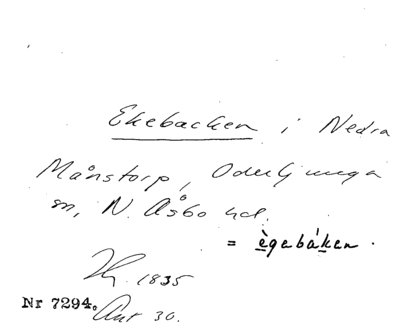 Ekebacken i Nedra
Månstorp, Oderljunga
sn, N. Åsbo hd.
= ègebáken.
1835
Nr 7294. Ant 30.